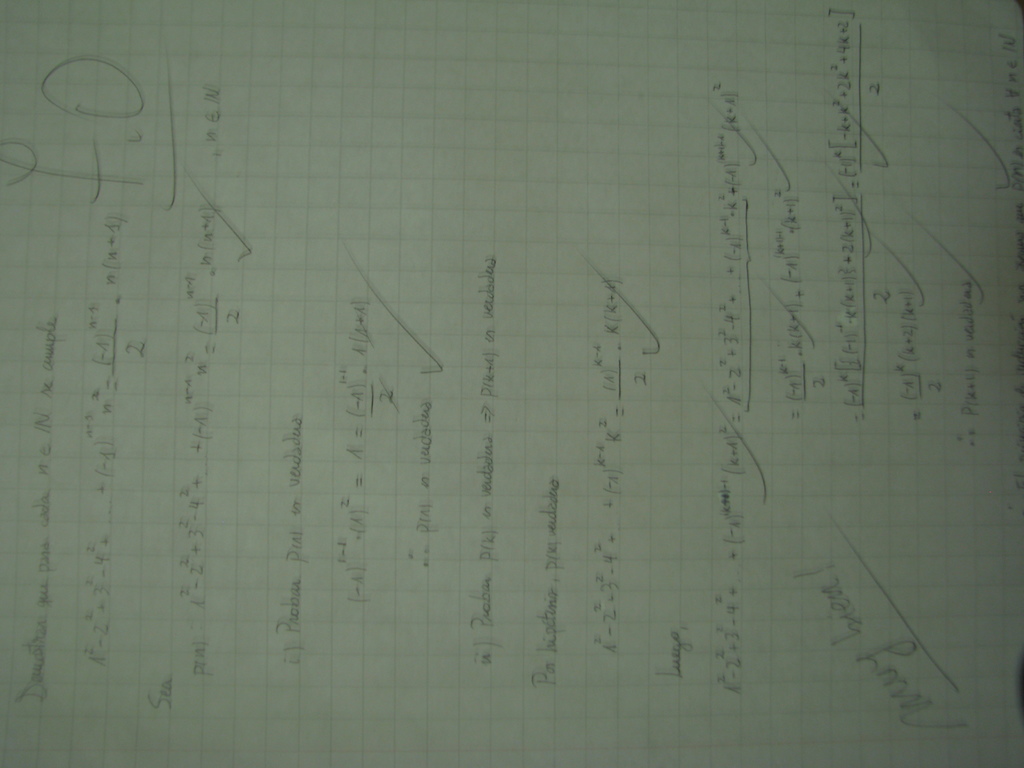 Demuestre que para cada n ∈ IN se cumple
1² - 2² + 3² - 4² + ..... + (-1)ⁿ⁻¹ n² = (-1)ⁿ⁻¹ · n(n+1) / 2
7,0
Sea
p(n) : 1² - 2² + 3² - 4² + ..... + (-1)ⁿ⁻¹ n² = (-1)ⁿ⁻¹ · n(n+1) / 2 , n ∈ IN
i) Probar p(1) es verdadero
(-1)¹⁻¹ · (1)² = 1 = (-1)¹⁺¹ · 1(1+1) / 2
∴ p(1) es verdadero
ii) Probar p(k) es verdadero ⇒ p(k+1) es verdadero
Por hipótesis, p(k) verdadero
1² - 2² - 3² - 4² + + (-1)ᵏ⁻¹ k² = (-1)ᵏ⁻¹ · k(k+1) / 2
Luego,
1² - 2² + 3² - 4² + + (-1)⁽ᵏ⁺¹⁾⁻¹ (k+1)² = 1² - 2² + 3² - 4² + .. + (-1)ᵏ⁻¹ · k² + (-1)⁽ᵏ⁺¹⁾⁻¹ (k+1)²
= (-1)ᵏ⁻¹ · k(k+1) / 2 + (-1)⁽ᵏ⁺¹⁾⁻¹ (k+1)²
= (-1)ᵏ [(-1)⁻¹ · k(k+1) + 2(k+1)²] / 2 = (-1)ᵏ [-k - k² + 2k² + 4k + 2] / 2
= (-1)ᵏ (k+2)(k+1) / 2
∴ p(k+1) es verdadero
Muy bien!
p(n) es cierto ∀ n ∈ IN